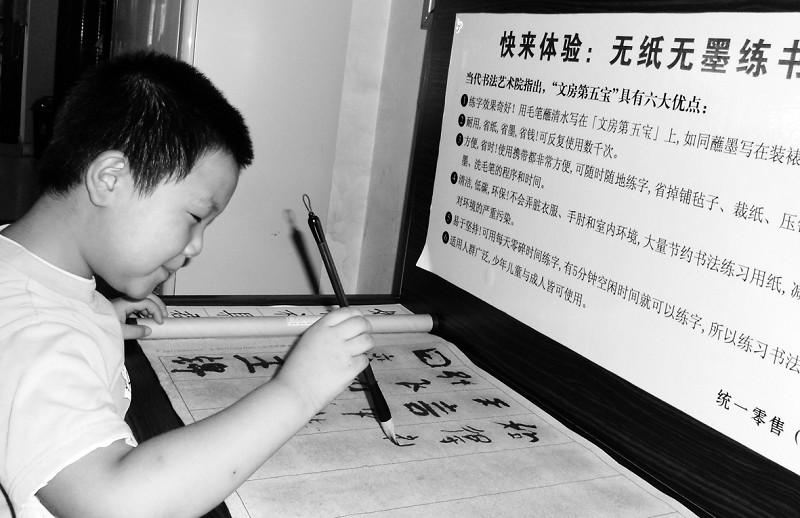 快来体验：无纸无墨练书
当代书法艺术院指出，“文房第五宝”具有六大优点：
❶练字效果奇好！用毛笔蘸清水写在「文房第五宝」上，如同蘸墨写在装裱
❷耐用，省纸，省墨，省钱！可反复使用数千次。
❸方便，省时！使用携带都非常方便，可随时随地练字，省掉铺毡子、裁纸、压
墨、洗毛笔的程序和时间。
❹清洁，低碳，环保！不会弄脏衣服、手肘和室内环境，大量节约书法练习用纸，减
对环境的严重污染。
❺易于坚持！可用每天零碎时间练字，有5分钟空闲时间就可以练字，所以练习书法
❻适用人群广泛，少年儿童与成人皆可使用。
统一零售（